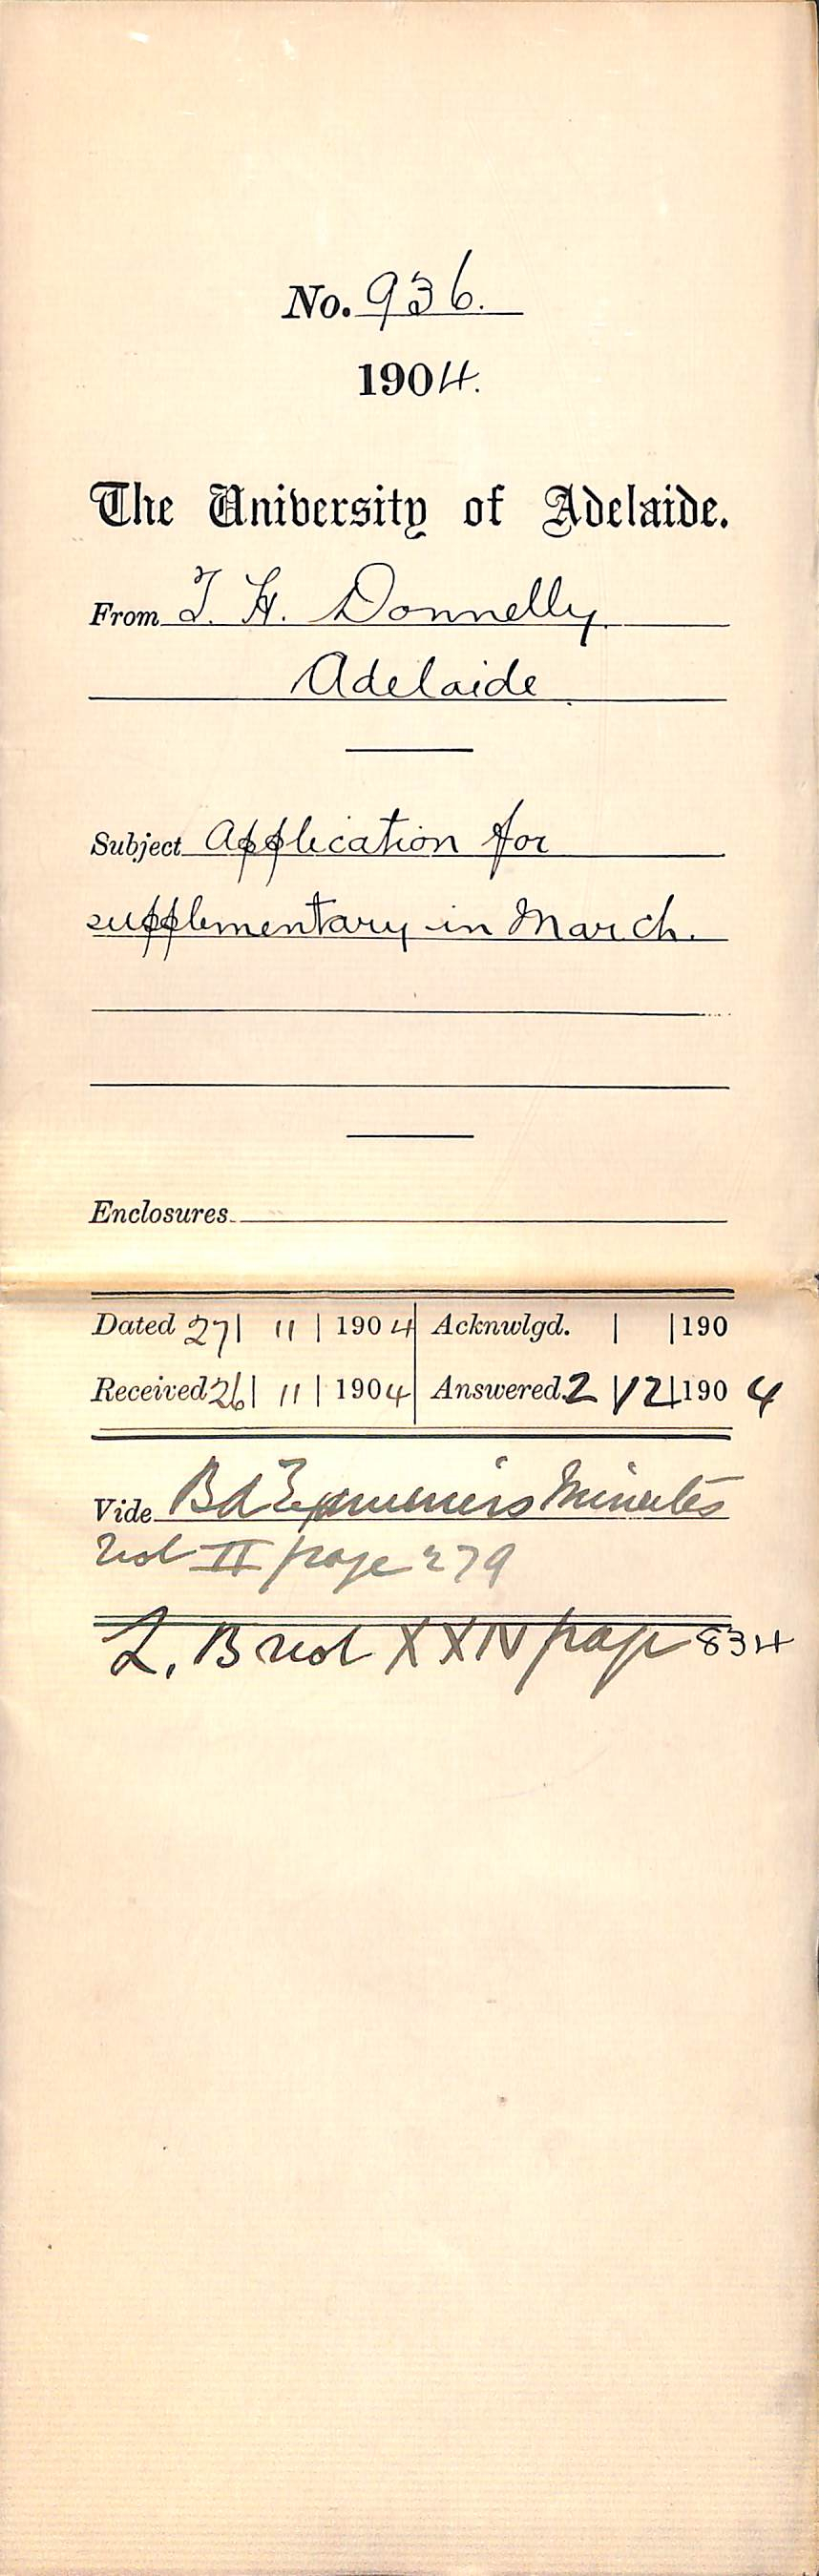 No. 936.
1904.
The University of Adelaide.
From T. H. Donnelly
Adelaide
Subject Application for
supplementary in March.
Enclosures
Dated 27 | 11 | 1904 Acknwlgd. | | 190
Received 26 | 11 | 1904 Answered. 2 | 12 | 1904
Vide Bd Examiners Minutes
Vol II page 279
L. B vol XXIV page 834